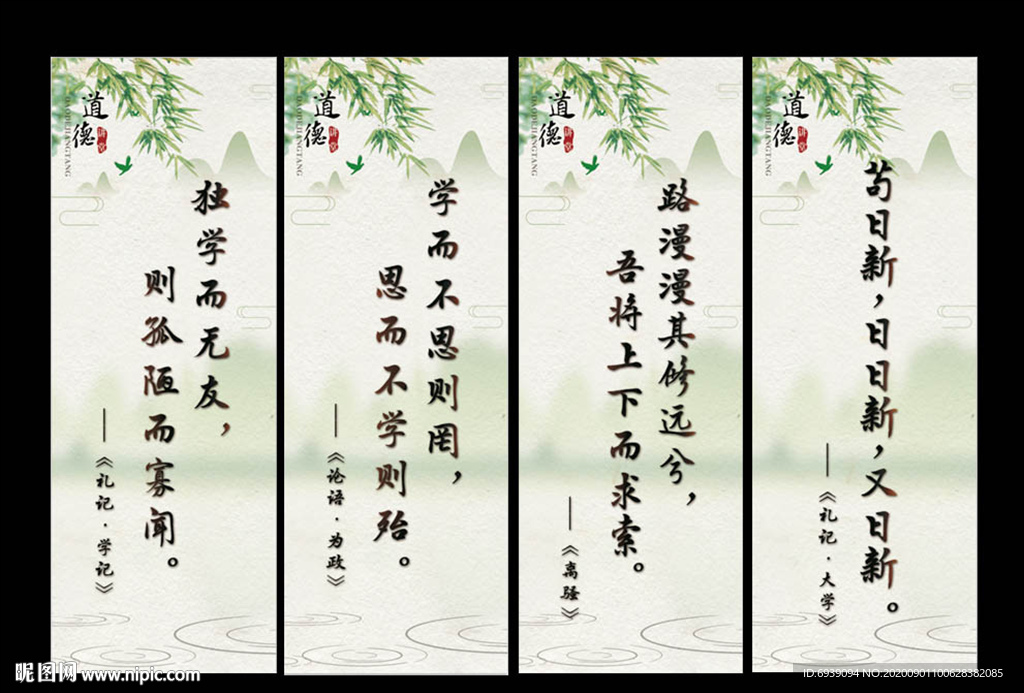 道德
讲堂
DAODEJIANGTANG
独学而无友，
则孤陋而寡闻。
——《礼记·学记》
道德
讲堂
DAODEJIANGTANG
学而不思则罔，
思而不学则殆。
——《论语·为政》
道德
讲堂
DAODEJIANGTANG
路漫漫其修远兮，
吾将上下而求索。
——《离骚》
道德
讲堂
DAODEJIANGTANG
苟日新，日日新，又日新。
——《礼记·大学》
昵图网 www.nipic.com
ID:6939094 NO:20200901100628382085